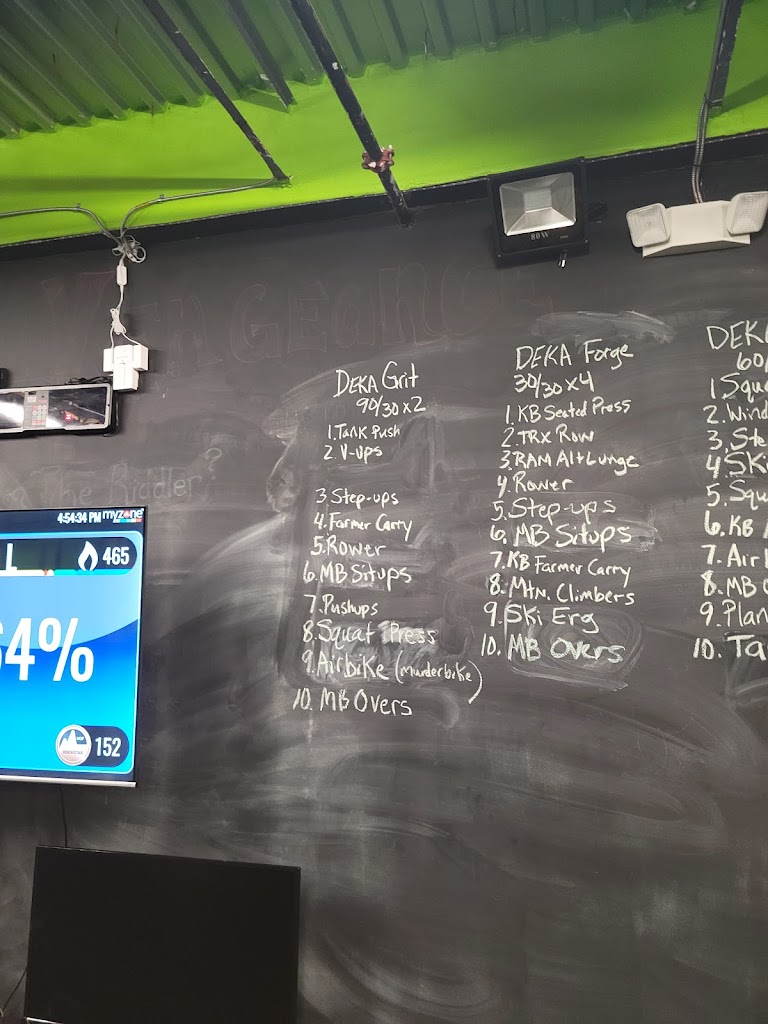 80W
VENGEANCE
The Riddler?
4:54:34 PM myzone
465
4%
152
DEKA Grit
90/30 x 2
1. Tank Push
2. V-ups
3 Step-ups
4. Farmer Carry
5. Rower
6. MB Situps
7. Pushups
8. Squat Press
9. Airbike (murderbike)
10. MB Overs
DEKA Forge
30/30 x 4
1. KB Seated Press
2. TRX Row
3. RAM Alt Lunge
4. Rower
5. Step-ups
6. MB Situps
7. KB Farmer Carry
8. Mtn. Climbers
9. Ski Erg
10. MB Overs
DEK
60/
1 Squa
2. Wind
3. Ste
4. Ski
5. Squ
6. KB
7. Air
8. MB
9. Plan
10. Ta